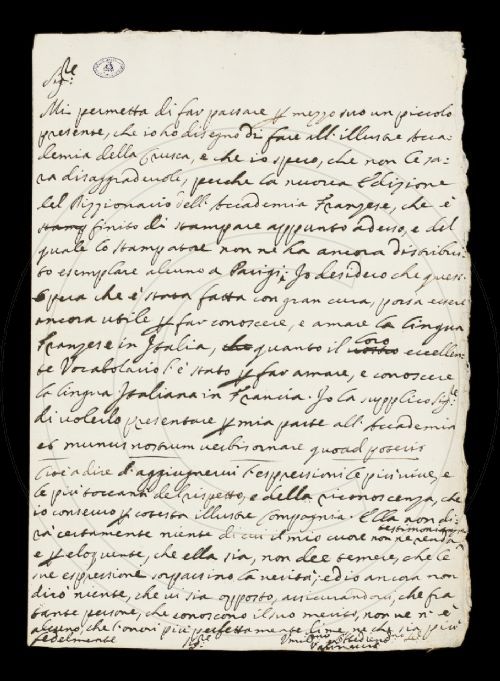 Sig.re
Mi permetta di far passare p mezzo suo un piccolo
presente, che io ho disegno di fare all'illustre Acca-
demia della Crusca, e che io spero, che non le sa-
ra disaggradevole, perche la nuova Edizione
del Dizzionario dell'Accademia Franzese, che è
stamp finito di stampare appunto adesso, e del
quale lo stampatore non ne ha ancora distribui-
to esemplare alcuno a Parigi; Io desidero che quest'
opera che è stata fatta con gran cura, possa essere
ancora utile p far conoscere, e amare la lingua
Franzese in Italia, quanto il vostro loro eccellen-
te Vocabolario l'è stato p far amare, e conoscere
la lingua Italiana in Francia. Io la supplico Sig.re
di volerlo presentare p mia parte all'Accademia
et munus nostrum verbis ornare quoad poteris
Cioè a dire d'aggiugnervi l'espressioni le più vive, e
le più toccanti del rispetto, e della riconoscenza, che
io conservo p cotesta illustre Compagnia. Ella non di-
rà certamente niente di cui il mio cuore non ne renda testimonianza
e p eloquente, che ella sia, non dee temere, che le
sue espressione sorpassino la verità; ed io ancora non
dirò niente, che vi sia opposto, assicurandovi, che fra
tante persone, che conoscono il suo merito, non ve n'è
alcuno, che l'onori più perfettamente di me, ne che sia più
fedelmente Sig.re